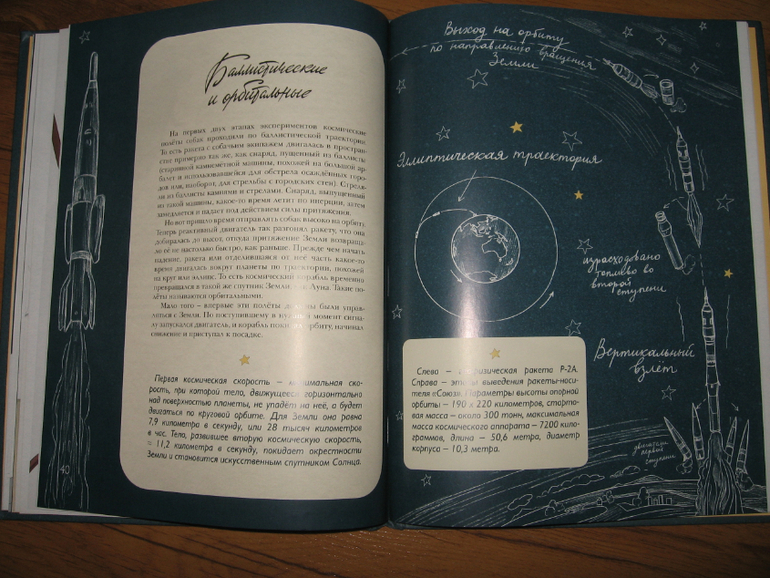 Баллистические
и орбитальные
На первых двух этапах экспериментов космические
полёты собак проходили по баллистической траектории.
То есть ракета с собачьим экипажем двигалась в простран-
стве примерно так же, как снаряд, пущенный из баллисты
(старинной камнеметной машины, похожей на большой ар-
балет и использовавшейся для обстрела осаждённых горо-
дов или, наоборот, для стрельбы с городских стен). Стреля-
ли из баллисты камнями и стрелами. Снаряд, выпущенный
из такой машины, какое-то время летит по инерции, затем
замедляется и падает под действием силы притяжения.
Но вот пришло время отправлять собак высоко на орбиту.
Теперь реактивный двигатель так разгонял ракету, что она
добиралась до высот, откуда притяжение Земли возвраща-
ло её не настолько быстро, как раньше. Прежде чем начать
падение, ракета или отделившаяся от неё часть какое-то
время двигалась вокруг планеты по траектории, похожей
на круг или эллипс. То есть космический корабль временно
превращался в такой же спутник Земли, как Луна. Такие по-
лёты называются орбитальными.
Мало того – впервые эти полёты должны были управ-
ляться с Земли. По поступившему в нужный момент сигналу
запускался двигатель, и корабль покидал орбиту, начинал
снижение и приступал к посадке.
Первая космическая скорость – минимальная ско-
рость, при которой тело, движущееся горизонтально
над поверхностью планеты, не упадёт на неё, а будет
двигаться по круговой орбите. Для Земли она равна
7,9 километра в секунду, или 28 тысяч километров
в час. Тело, развившее вторую космическую скорость,
= 11,2 километра в секунду, покидает окрестности
Земли и становится искусственным спутником Солнца.
40
Выход на орбиту
по направлению вращения
Земли
Эллиптическая траектория
израсходовано
топливо во
второй
ступени
Вертикальный
взлёт
Слева – геофизическая ракета Р-2А.
Справа – этапы выведения ракеты-носи-
теля «Союз». Параметры высоты опорной
орбиты – 190 х 220 километров, старто-
вая масса – около 300 тонн, максимальная
масса космического аппарата – 7200 кило-
граммов, длина – 50,6 метра, диаметр
корпуса – 10,3 метра.
двигатели
первой
ступени